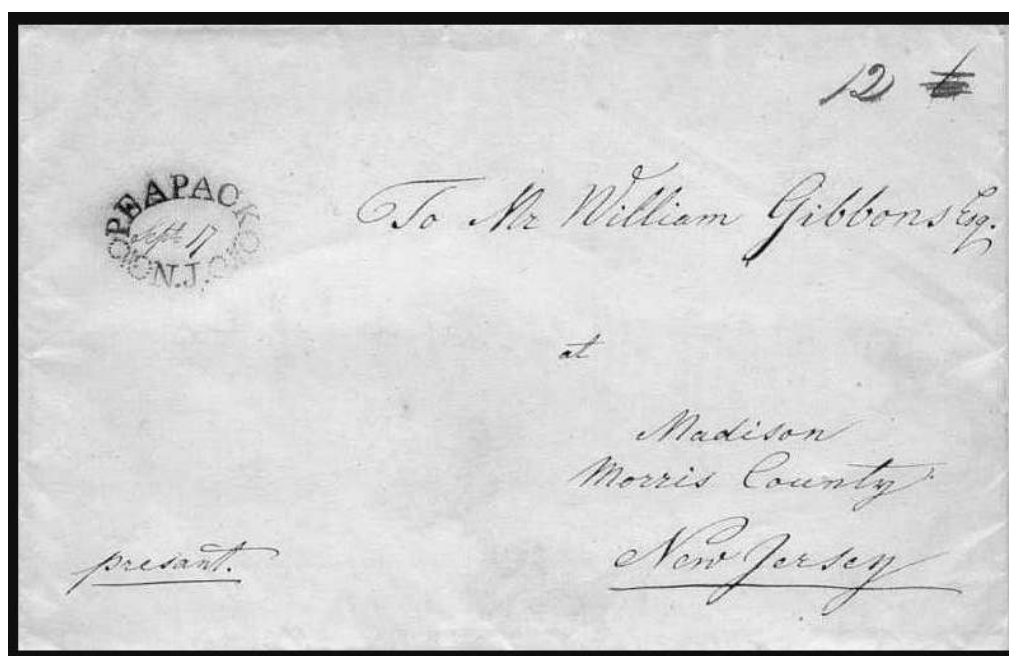 12
PEAPACK
Sept 17
N.J.
To Mr William Gibbons Esq.
at
Madison
Morris County
New Jersey
presant.